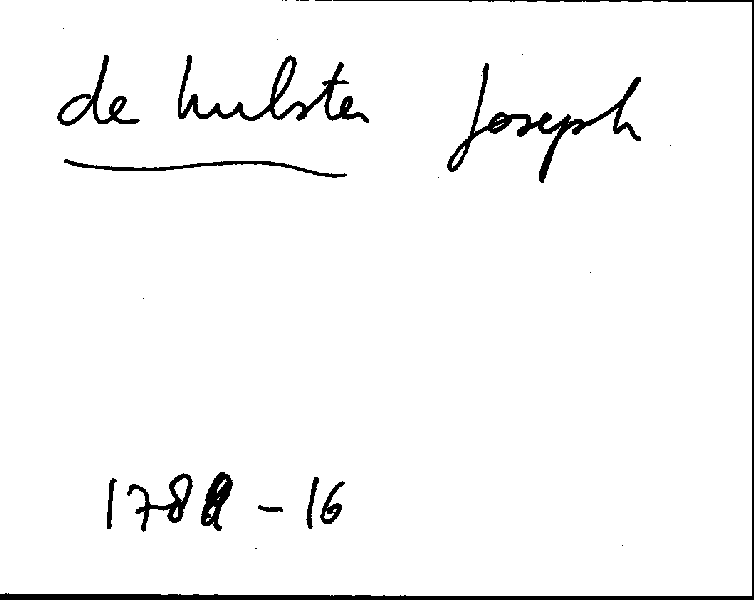 de hulster Joseph
- 16